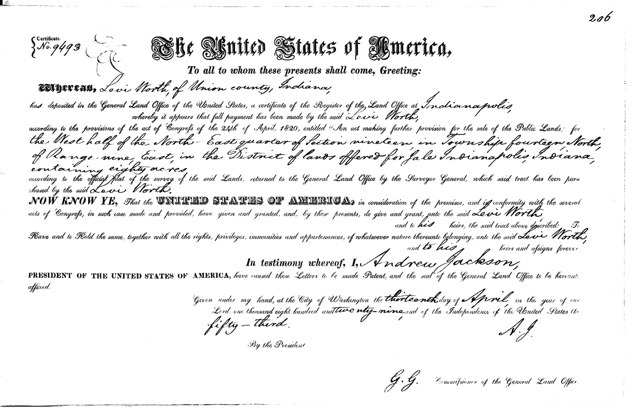 206
Certificate
No. 9493
The United States of America,
To all to whom these presents shall come, Greeting:
Whereas, Levi Worth, of Union county, Indiana,
has deposited in the General Land Office of the United States, a certificate of the Register of the Land Office at Indianapolis,
whereby it appears that full payment has been made by the said Levi Worth,
according to the provisions of the act of Congress of the 24th of April, 1820, entitled "An act making further provision for the sale of the Public Lands," for
the West half of the North-East quarter of Section nineteen in Township fourteen North,
of Range nine, East, in the District of lands offered for sale Indianapolis, Indiana,
containing eighty acres,
according to the official plat of the survey of the said Lands, returned to the General Land Office by the Surveyor General, which said tract has been pur-
chased by the said Levi Worth.
NOW KNOW YE, That the UNITED STATES OF AMERICA, in consideration of the premises, and in conformity with the several
acts of Congress, in such case made and provided, have given and granted, and, by these presents, do give and grant, unto the said Levi Worth
and to his heirs, the said tract above described: To
Have and to Hold the same, together with all the rights, privileges, immunities and appurtenances, of whatsoever nature thereunto belonging, unto the said Levi Worth,
and to his heirs and assigns forever
In testimony whereof, I, Andrew Jackson,
PRESIDENT OF THE UNITED STATES OF AMERICA, have caused these Letters to be made Patent, and the seal of the General Land Office to be hereunto
affixed.
Given under my hand, at the City of Washington the thirteenth day of April, in the year of our
Lord one thousand eight hundred and twenty-nine, and of the Independence of the United States the
fifty-third.
A. J.
By the President
G. G. Commissioner of the General Land Office